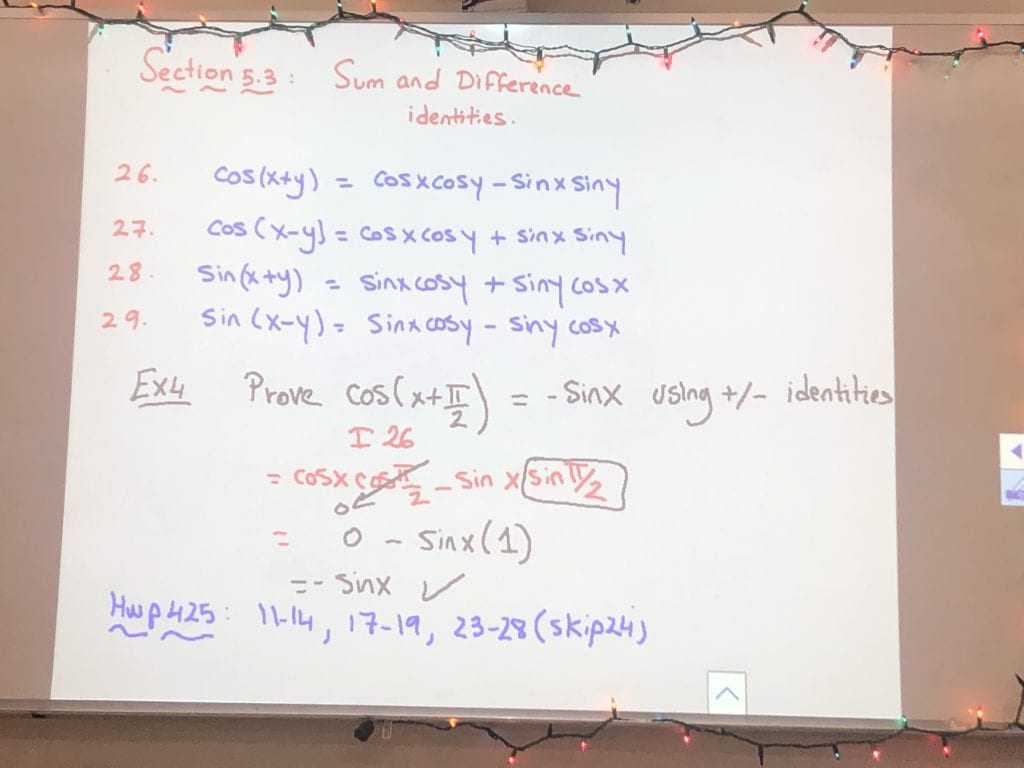 Section 5.3: Sum and Difference
identities.
26. cos(x+y) = cosxcosy - sinx siny
27. cos(x-y) = cosxcosy + sinx siny
28. sin(x+y) = sinxcosy + siny cosx
29. sin(x-y) = sinxcosy - siny cosx
Ex4 Prove cos(x+π/2) = -sinx using +/- identities
I 26
= cosx cos π/2 - sin x sin π/2
0
= 0 - sinx(1)
= - sinx ✓
Hw p425: 11-14, 17-19, 23-28 (skip24)